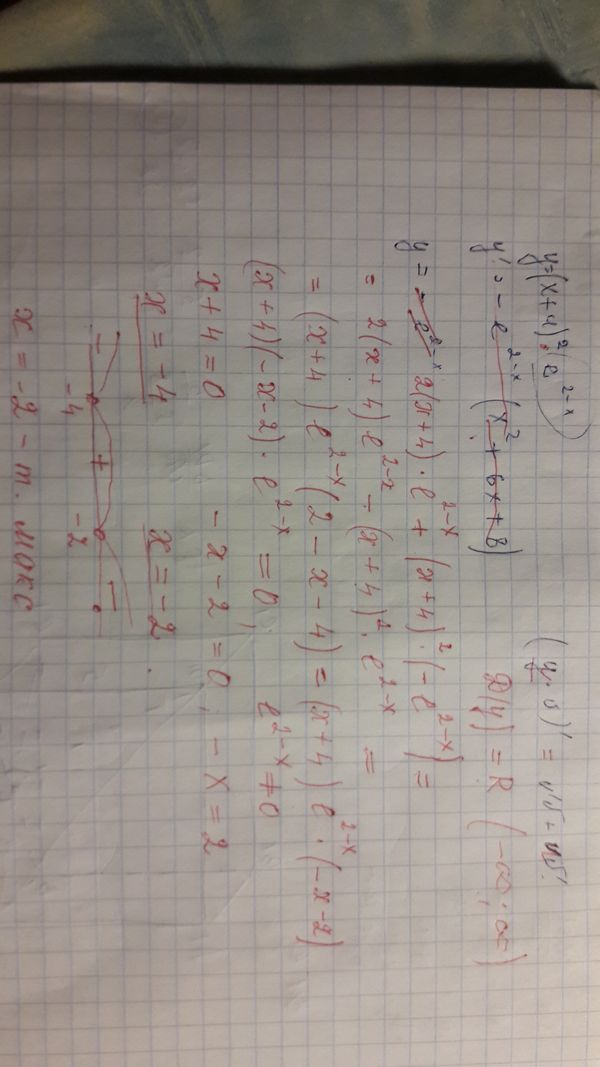 y=(x+4)²·e^{2-x} (u·v)' = u'v + uv'
y' = -e^{2-x}(x²+6x+8) D(y) = R (-∞; ∞)
y = -e^{2-x} 2(x+4)·e^{2-x} + (x+4)²·(-e^{2-x}) =
= 2(x+4)e^{2-x} - (x+4)²·e^{2-x} =
= (x+4)e^{2-x}(2-x-4) = (x+4)e^{2-x}·(-x-2)
(x+4)(-x-2)·e^{2-x} = 0; e^{2-x} ≠ 0
x+4=0 -x-2=0; -x=2
x=-4 x=-2.
- + -
-4 -2
x = -2 - т. макс